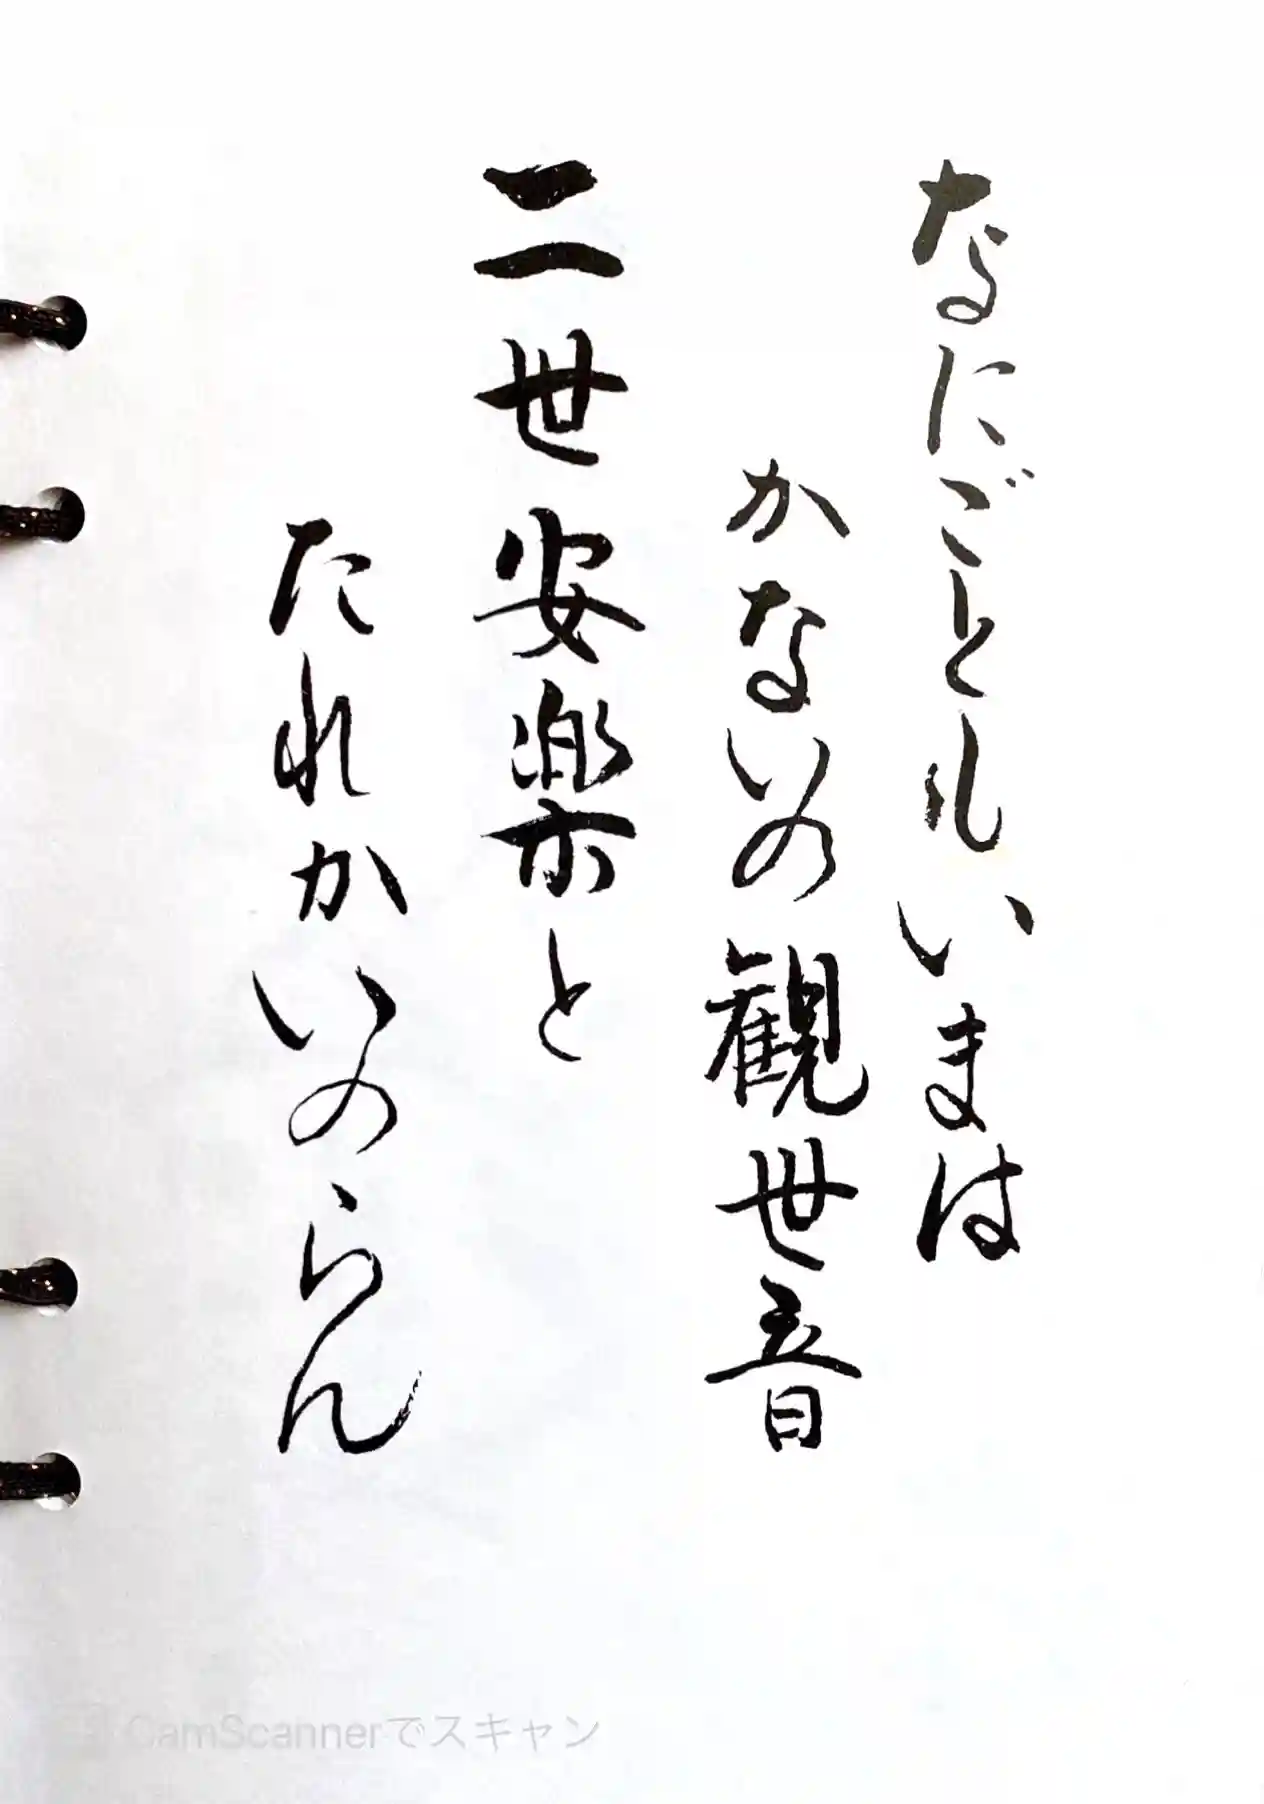 なにごともいまは
かないの観世音
二世安楽と
たれかいのらん
CamScannerでスキャン